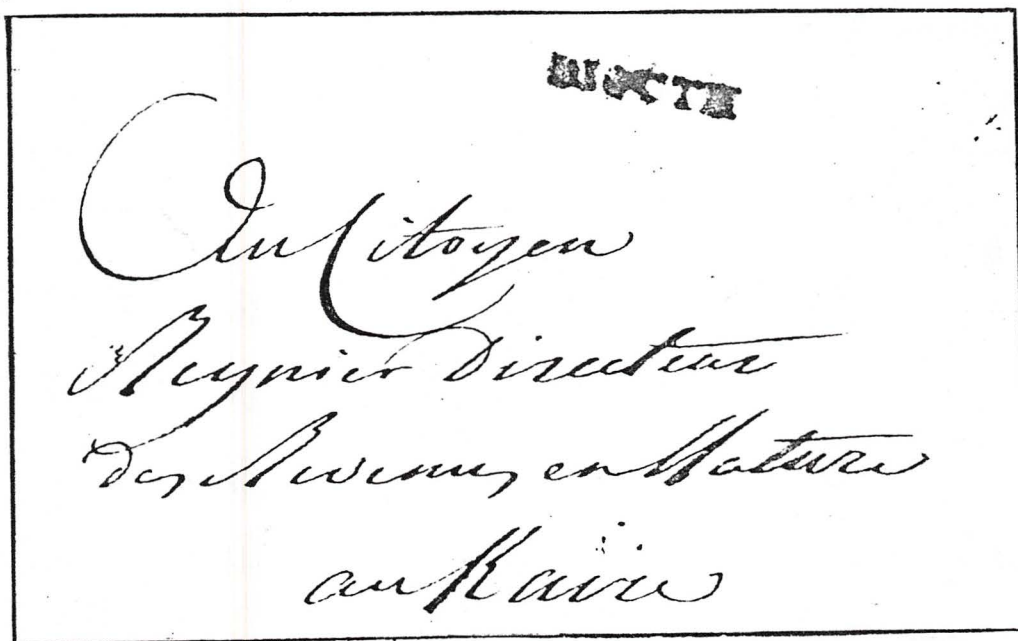 Au Citoyen
Reynier Directeur
des Revenus en Nature
au Kaire